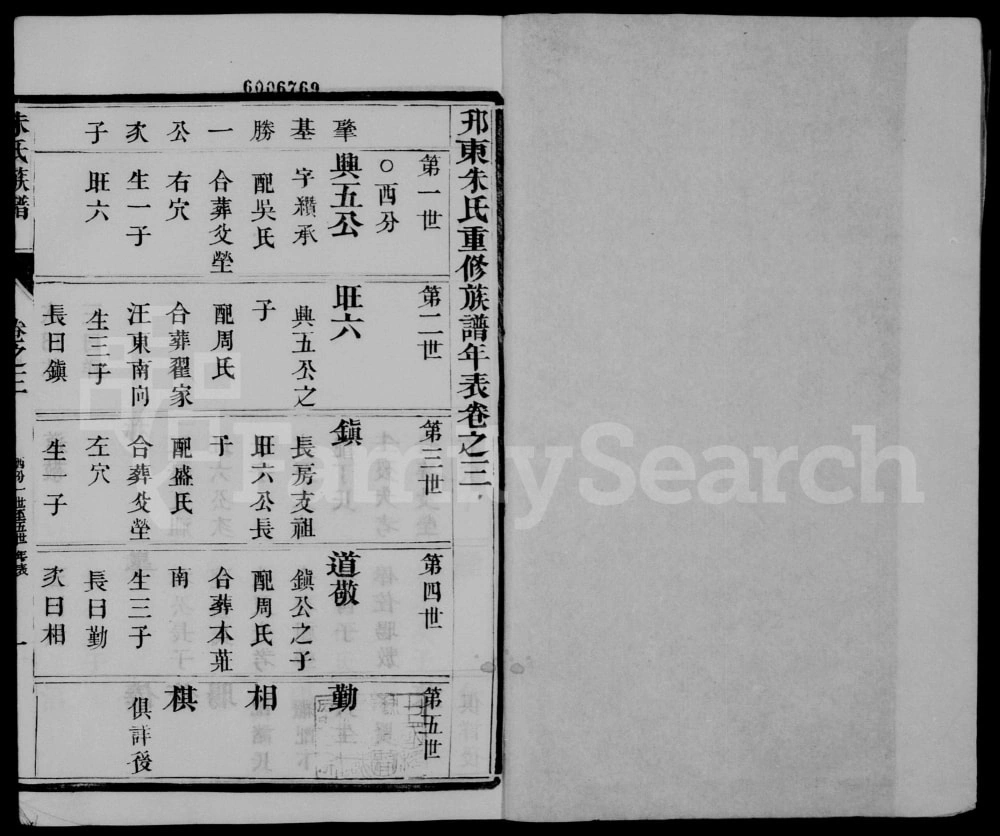 6006769
邘東朱氏重修族譜年表卷之三
第一世
○西分
肇
興五公
基
字纘承
勝
配吳氏
一
合葬父塋
公
右穴
次
生一子
子
旺六
第二世
旺六
興五公之
子
配周氏
合葬翟家
汪東南向
生三子
長曰鎮
第三世
鎮
長房支祖
旺六公長
子
配盛氏
合葬父塋
左穴
生子
第四世
道敬
鎮公之子
配周氏
合葬本莊
南
生三子
長曰勤
次曰相
第五世
勤
相
棋
俱詳後
朱氏族譜
卷之三
一
FamilySearch